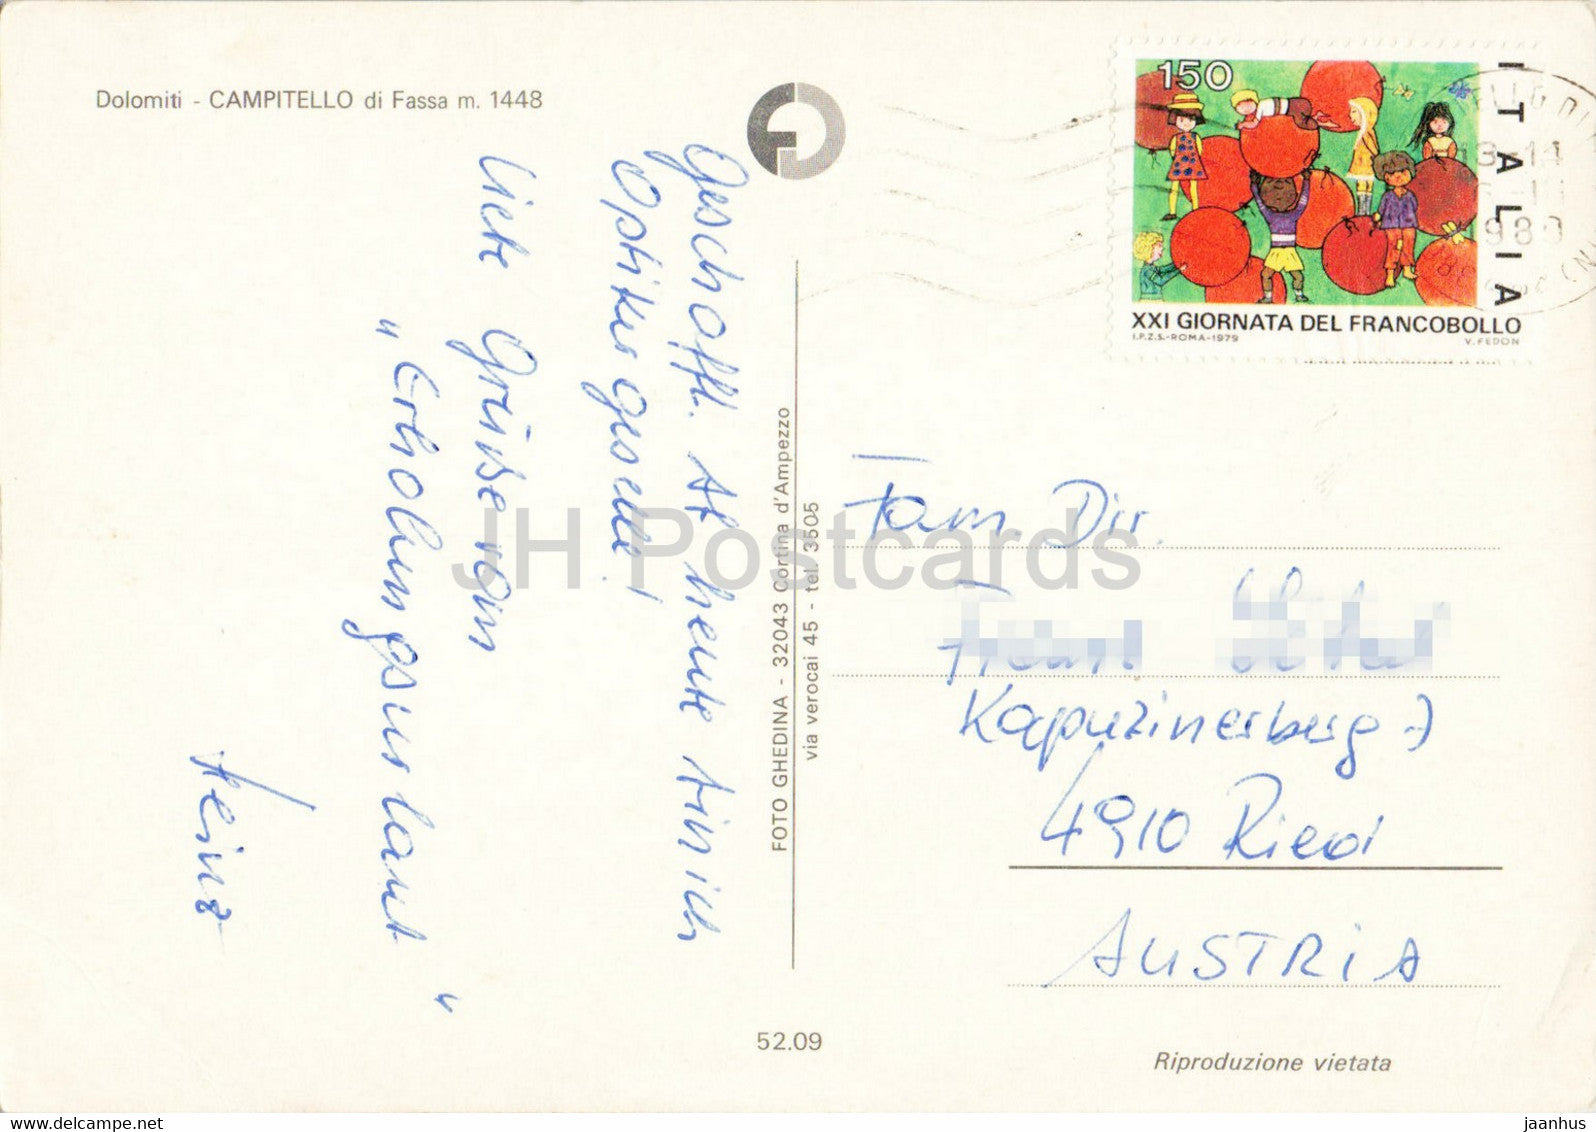 Dolomiti - CAMPITELLO di Fassa m. 1448
Geschafft. Ab heute bin ich
Optikergeselle!
Liebe Grüße vom
„Erholungsurlaub“
Heinz
FOTO GHEDINA - 32043 Cortina d'Ampezzo
via verocai 45 - tel. 3505
52.09
150
ITALIA
XXI GIORNATA DEL FRANCOBOLLO
I.P.Z.S.-ROMA-1979
V. FEDON
1980
Fam. Dir.
Kapuzinerberg 7
4910 Ried
AUSTRIA
Riproduzione vietata
JH Postcards
jaanhus